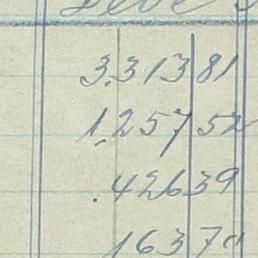 3.313 81
1.257 52
426 39
163 70